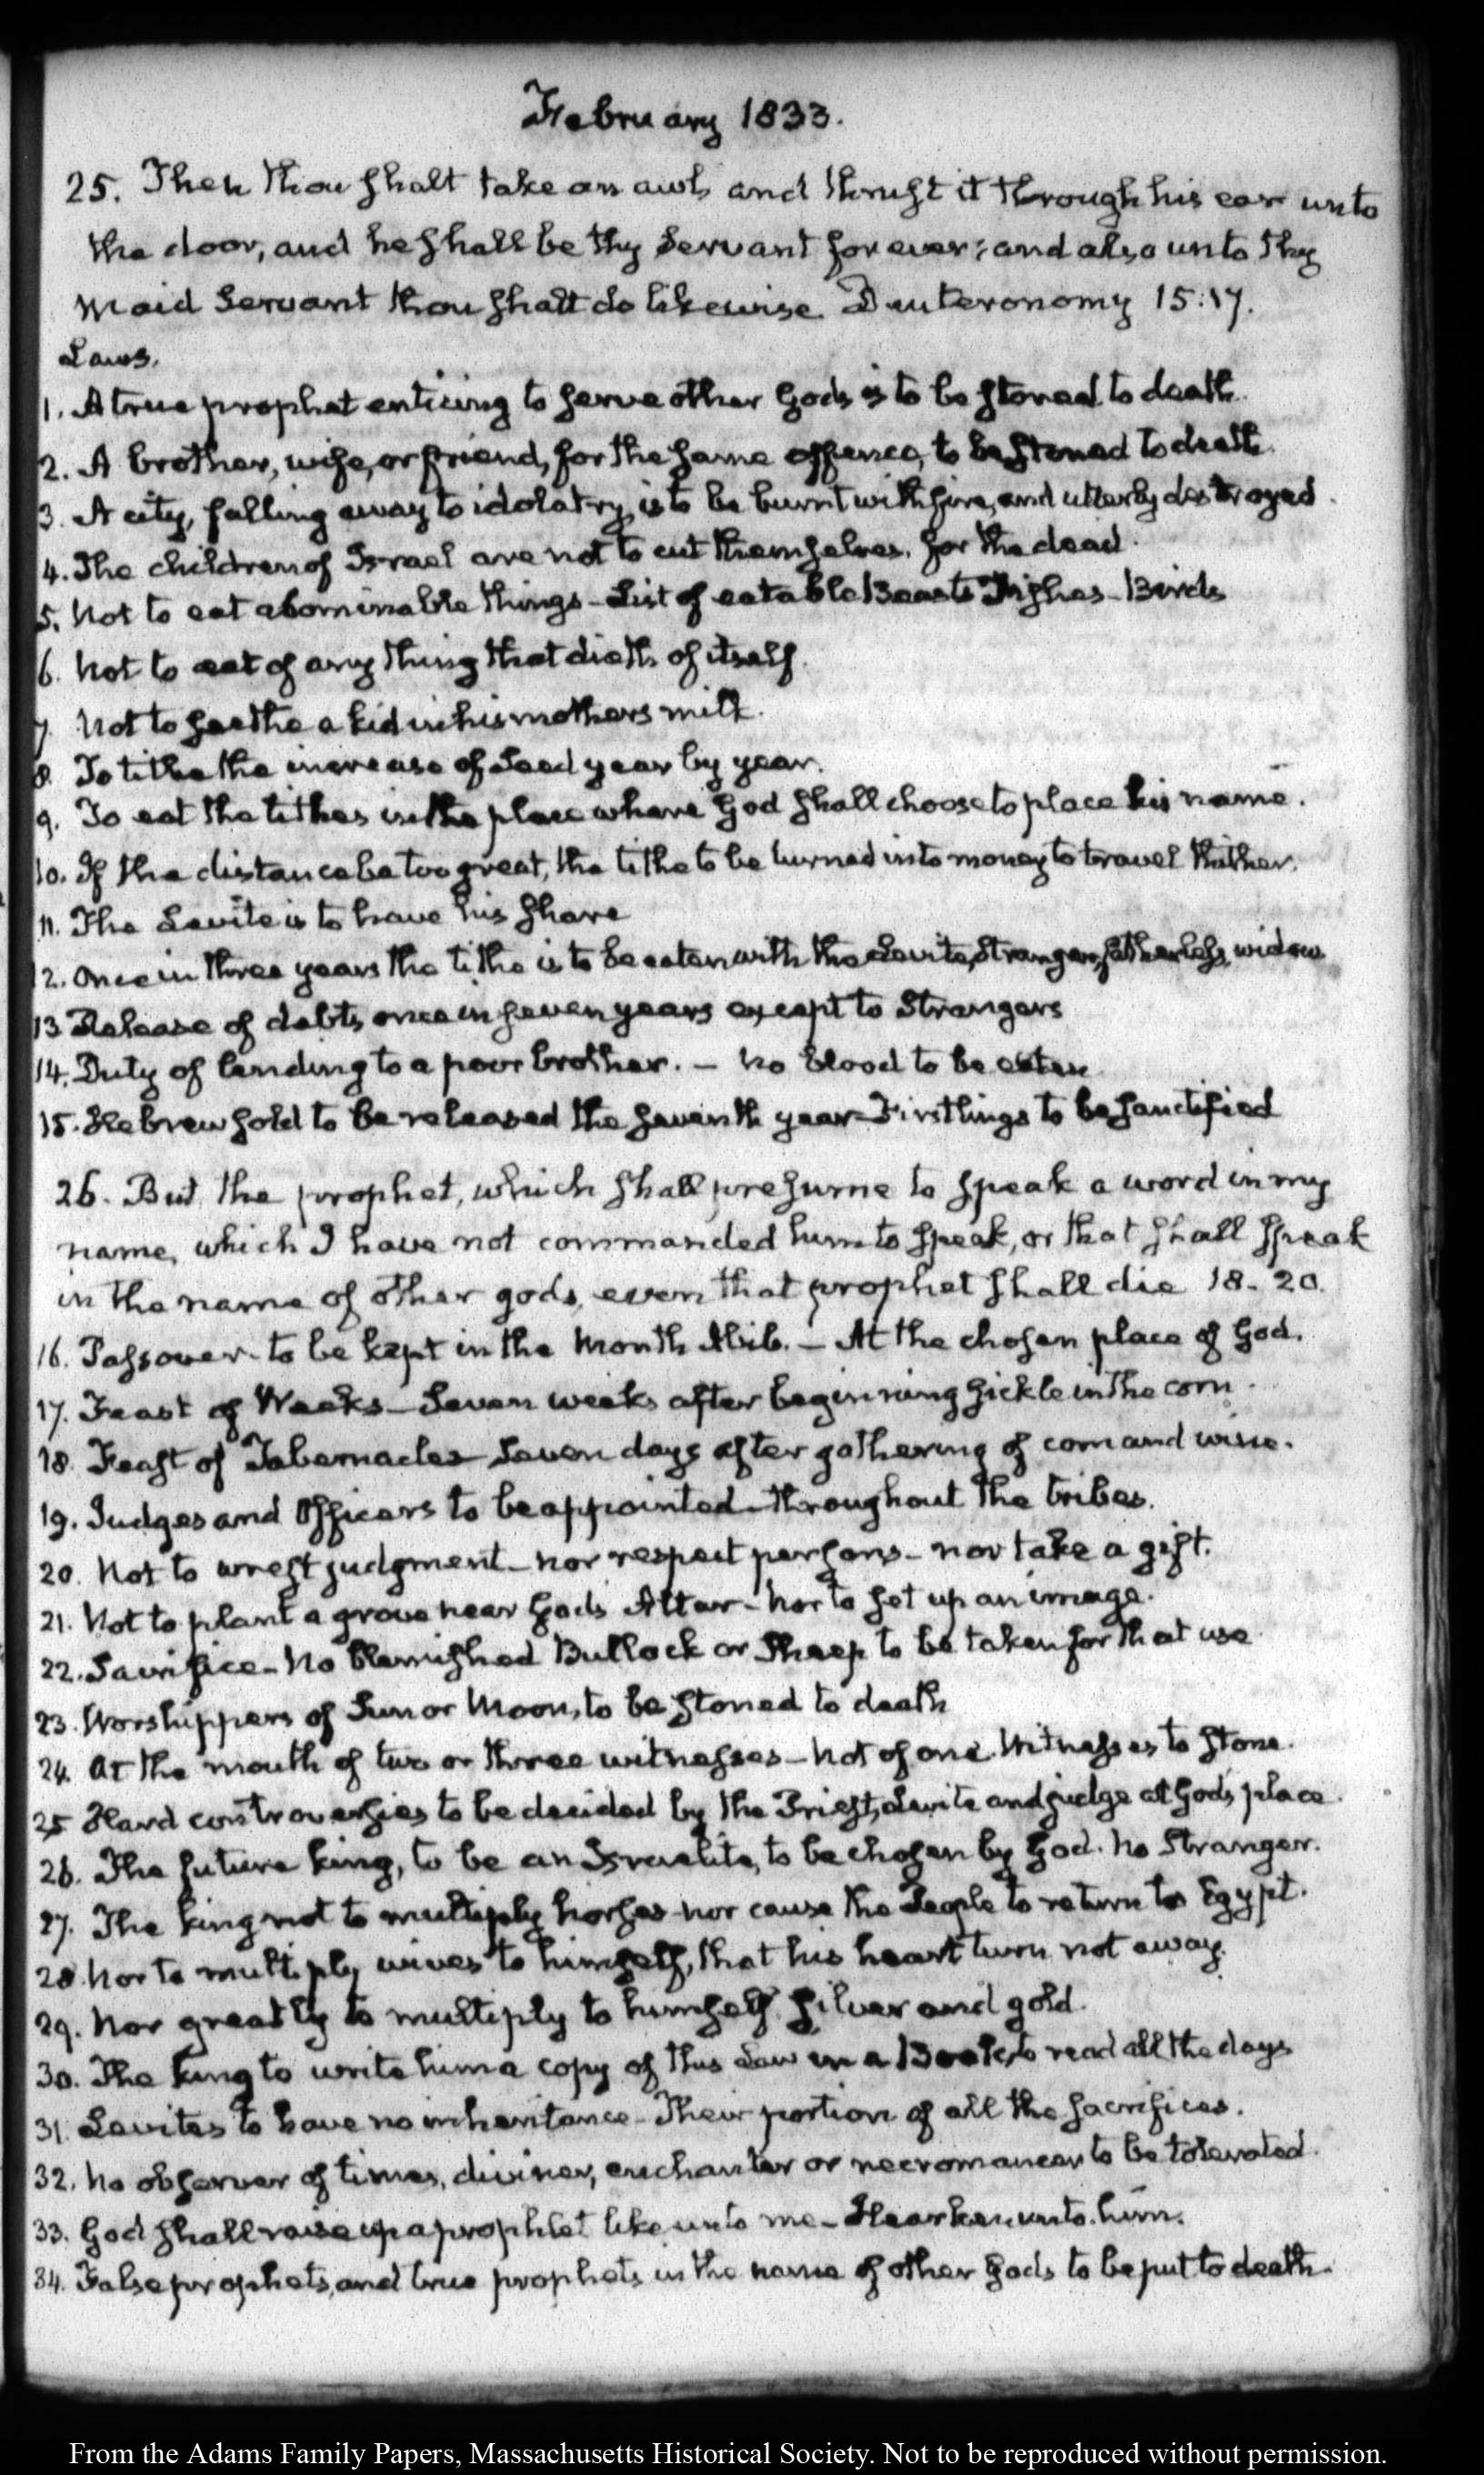 February 1833.
25. Then thou shalt take an awl, and thrust it through his ear unto
the door, and he shall be thy Servant for ever: and also unto thy
maid Servant thou shalt do likewise Deuteronomy 15:17.
Laws.
1. A true prophet enticing to serve other Gods is to be stoned to death.
2. A brother, wife, or friend, for the same offence, to be stoned to death.
3. A city, falling away to idolatry, is to be burnt with fire, and utterly destroyed.
4. The children of Israel are not to cut themselves, for the dead.
5. Not to eat abominable things - List of eatable Beasts Fishes - Birds
6. Not to eat of any thing that dieth of itself.
7. Not to seethe a kid in his mothers milk.
8. To tithe the increase of Seed year by year.
9. To eat the tithes in the place where God shall choose to place his name.
10. If the distance be too great, the tithe to be turned into money to travel thither.
11. The Levite is to have his share
12. Once in three years the tithe is to be eaten with the Levite, Stranger, fatherless, widow
13 Release of debts once in seven years except to Strangers
14. Duty of lending to a poor brother. - No blood to be eaten
15. Hebrew sold to be released the seventh year - Firstlings to be sanctified
26. But the prophet, which shall presume to speak a word in my
name, which I have not commanded him to speak, or that shall speak
in the name of other gods, even that prophet shall die 18-20.
16. Passover - to be kept in the Month Abib. - At the chosen place of God.
17. Feast of Weeks - Seven weeks after beginning sickle in the corn.
18. Feast of Tabernacles - Seven days after gathering of corn and wine.
19. Judges and Officers to be appointed throughout the tribes.
20. Not to wrest judgment - nor respect persons - nor take a gift.
21. Not to plant a grove near Gods Altar - nor to set up an image.
22. Sacrifice - No blemished Bullock or Sheep to be taken for that use
23. Worshippers of Sun or Moon, to be stoned to death
24. At the mouth of two or three witnesses - not of one. Witnesses to stone.
25 Hard controversies to be decided by the Priest, Levite and judge at Gods place.
26. The future king, to be an Israelite, to be chosen by God. No Stranger.
27. The king not to multiply horses - nor cause the People to return to Egypt.
28. Nor to multiply wives to himself, that his heart turn not away.
29. Nor greatly to multiply to himself silver and gold.
30. The king to write him a copy of this Law in a Book, to read all the days
31. Levites to have no inheritance - Their portion of all the sacrifices.
32. No observer of times, diviner, enchanter or necromancer to be tolerated.
33. God shall raise up a prophet like unto me - Hearken unto him.
34. False prophets, and true prophets in the name of other Gods to be put to death.
From the Adams Family Papers, Massachusetts Historical Society. Not to be reproduced without permission.